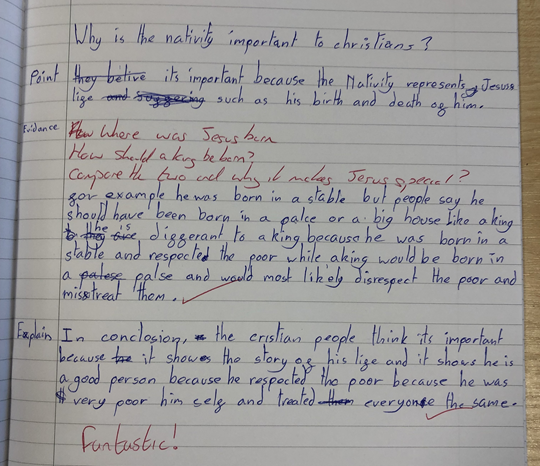 Why is the nativity important to christians?
Point they belive its important because the Nativity represents Jesus
lige and suggecing such as his birth and death og him.
Evidance How Where was Jesus born
How should a king be born?
Compare the two and why it makes Jesus special?
gor example he was born in a stable but people say he
should have been born in a palce or a big house like a king
he is diggerant to a king because he was born in a
stable and respected the poor while a king would be born in
a palese palse and would most likely disrespect the poor and
misstreat them.
Explain In conclosion, the cristian people think its important
because it shows the story og his lige and it shows he is
a good person because he respected the poor because he was
very poor him selg and treated them everyone the same.
Fantastic!